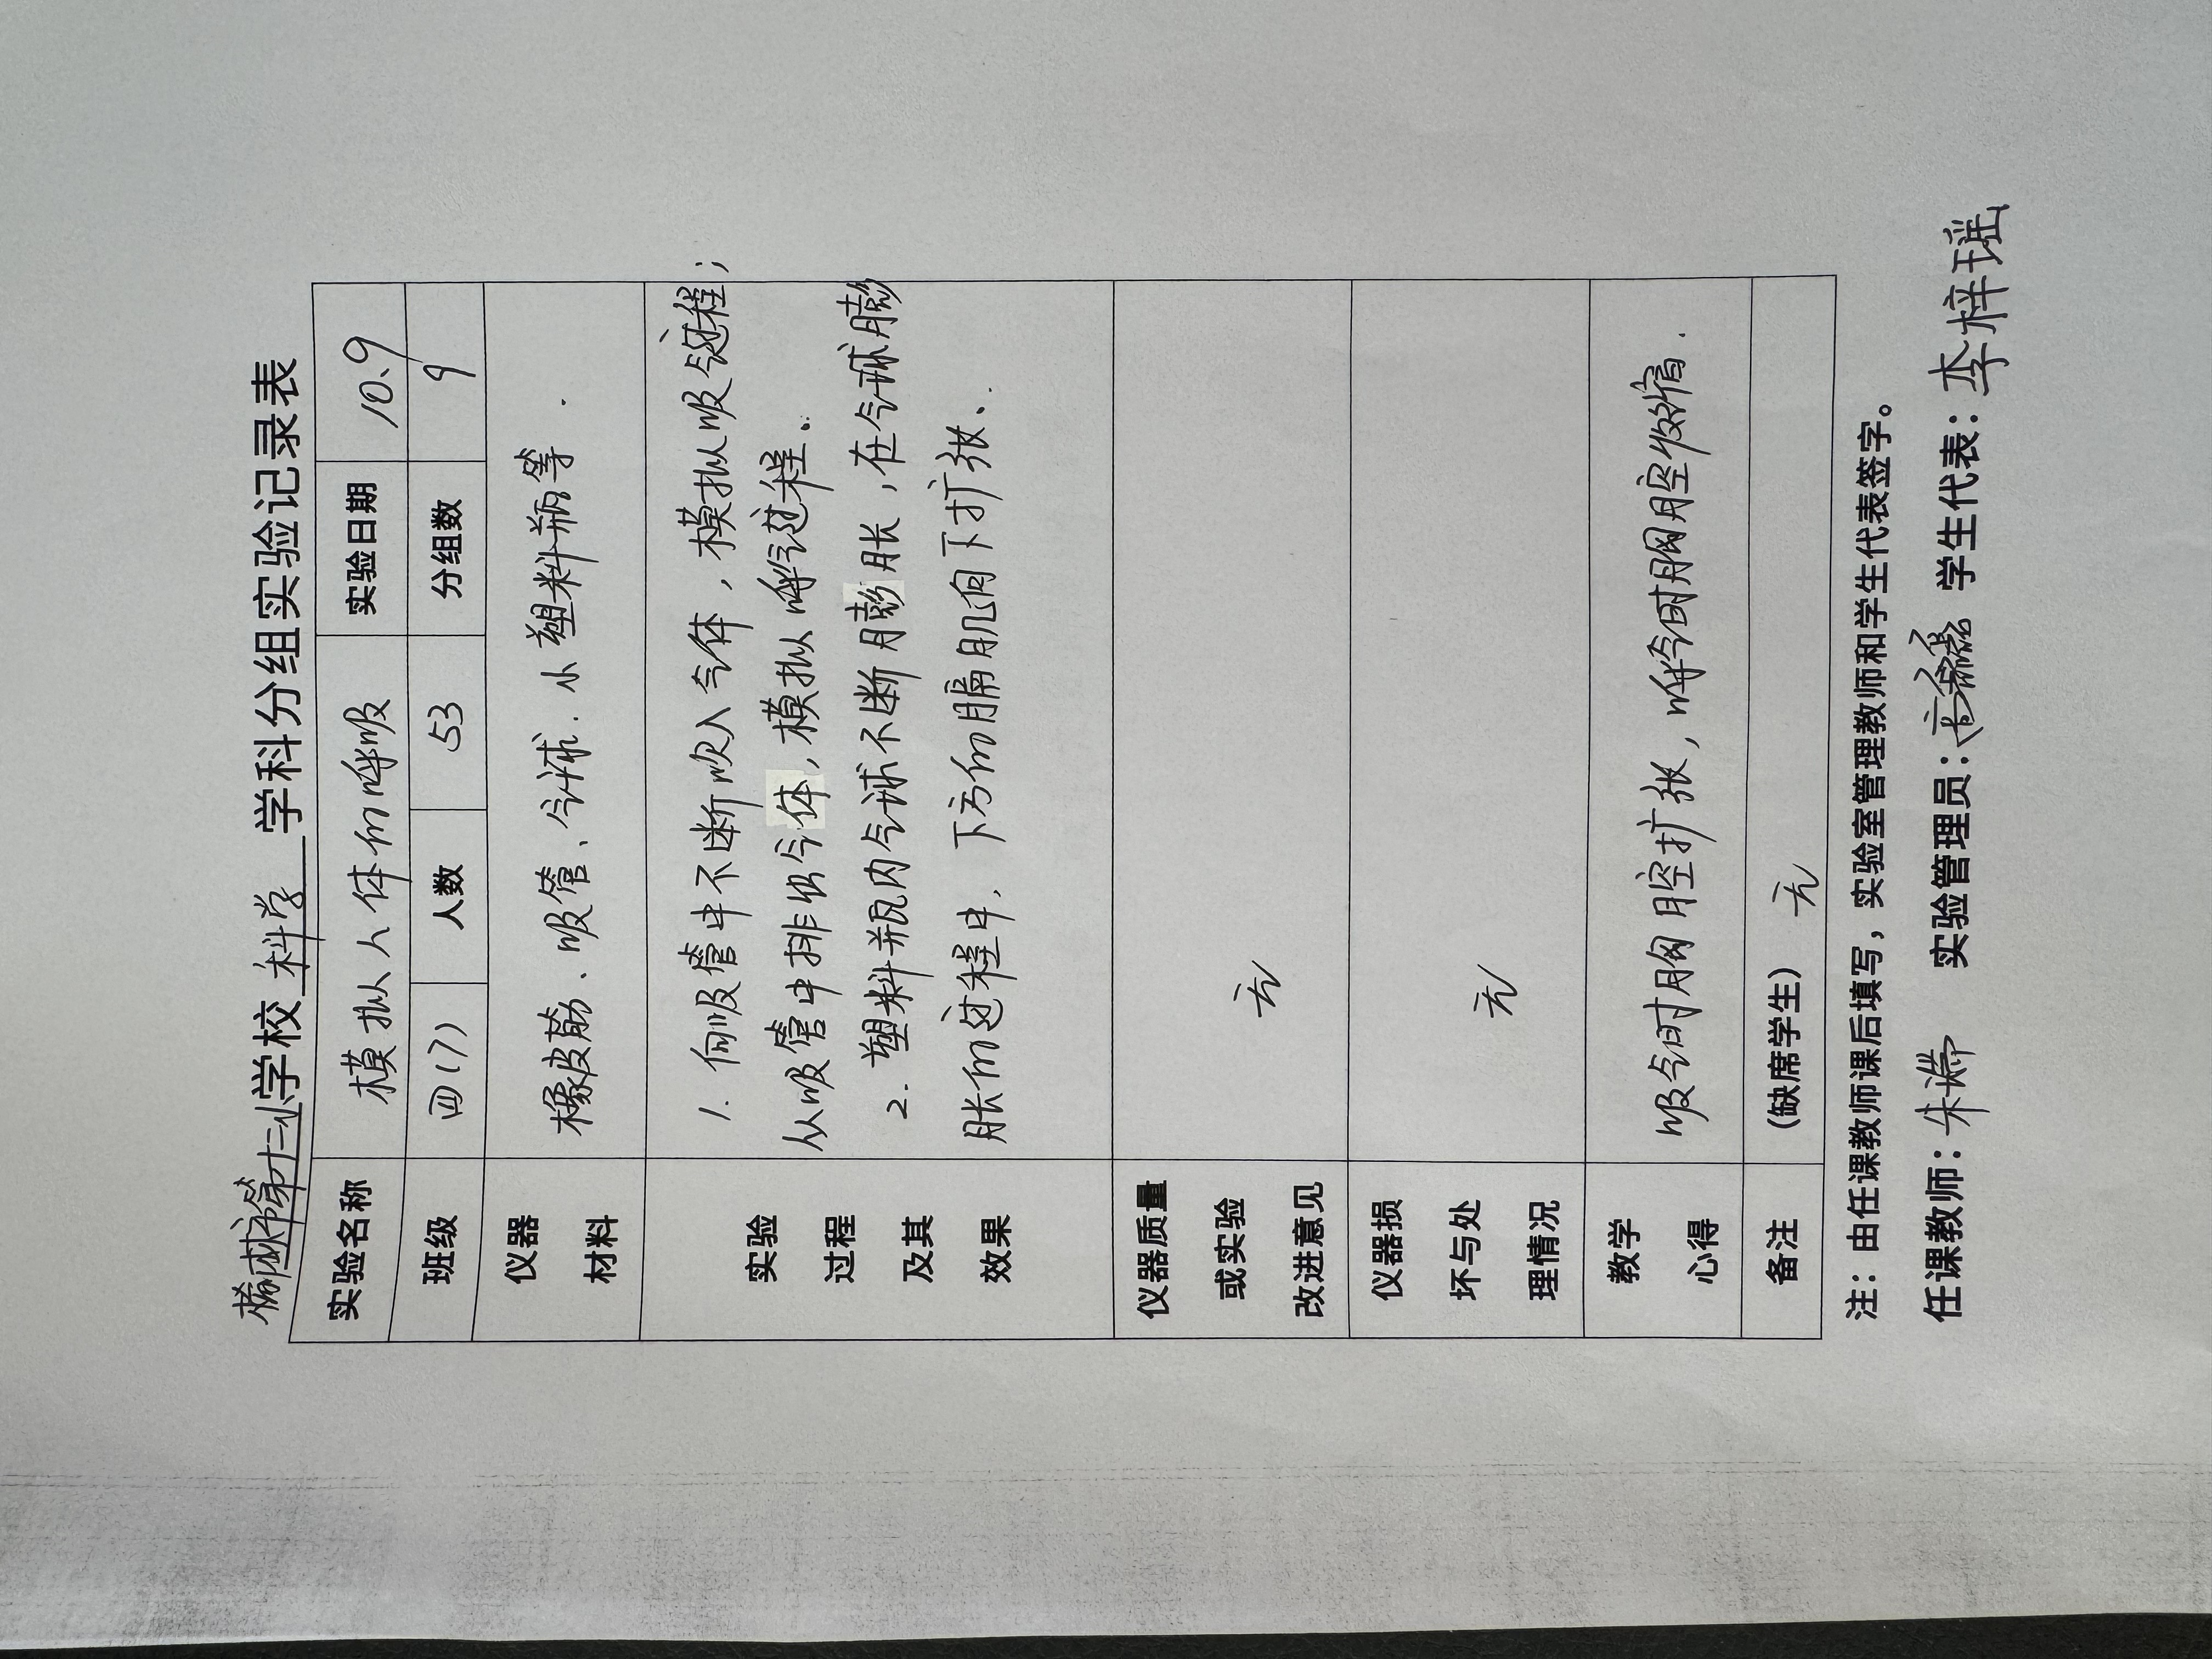 榆林市第十二小学校 科学 学科分组实验记录表
实验名称 模拟人体的呼吸 实验日期 10.9
班级 四(7) 人数 53 分组数 9
仪器材料 橡皮筋、吸管、气球、小塑料瓶等.
实验过程及其效果
1. 向吸管中不断吹入气体，模拟吸气过程；
从吸管中排出气体，模拟呼气过程.
2. 塑料瓶内气球不断膨胀，在气球膨
胀的过程中，下方的膈肌向下扩张.
仪器质量或实验改进意见 无
仪器损坏与处理情况 无
教学心得 吸气时胸腔扩张，呼气时胸腔收缩.
备注 (缺席学生) 无
注：由任课教师课后填写，实验室管理教师和学生代表签字。
任课教师：朱 实验管理员：高 学生代表：李梓瑶